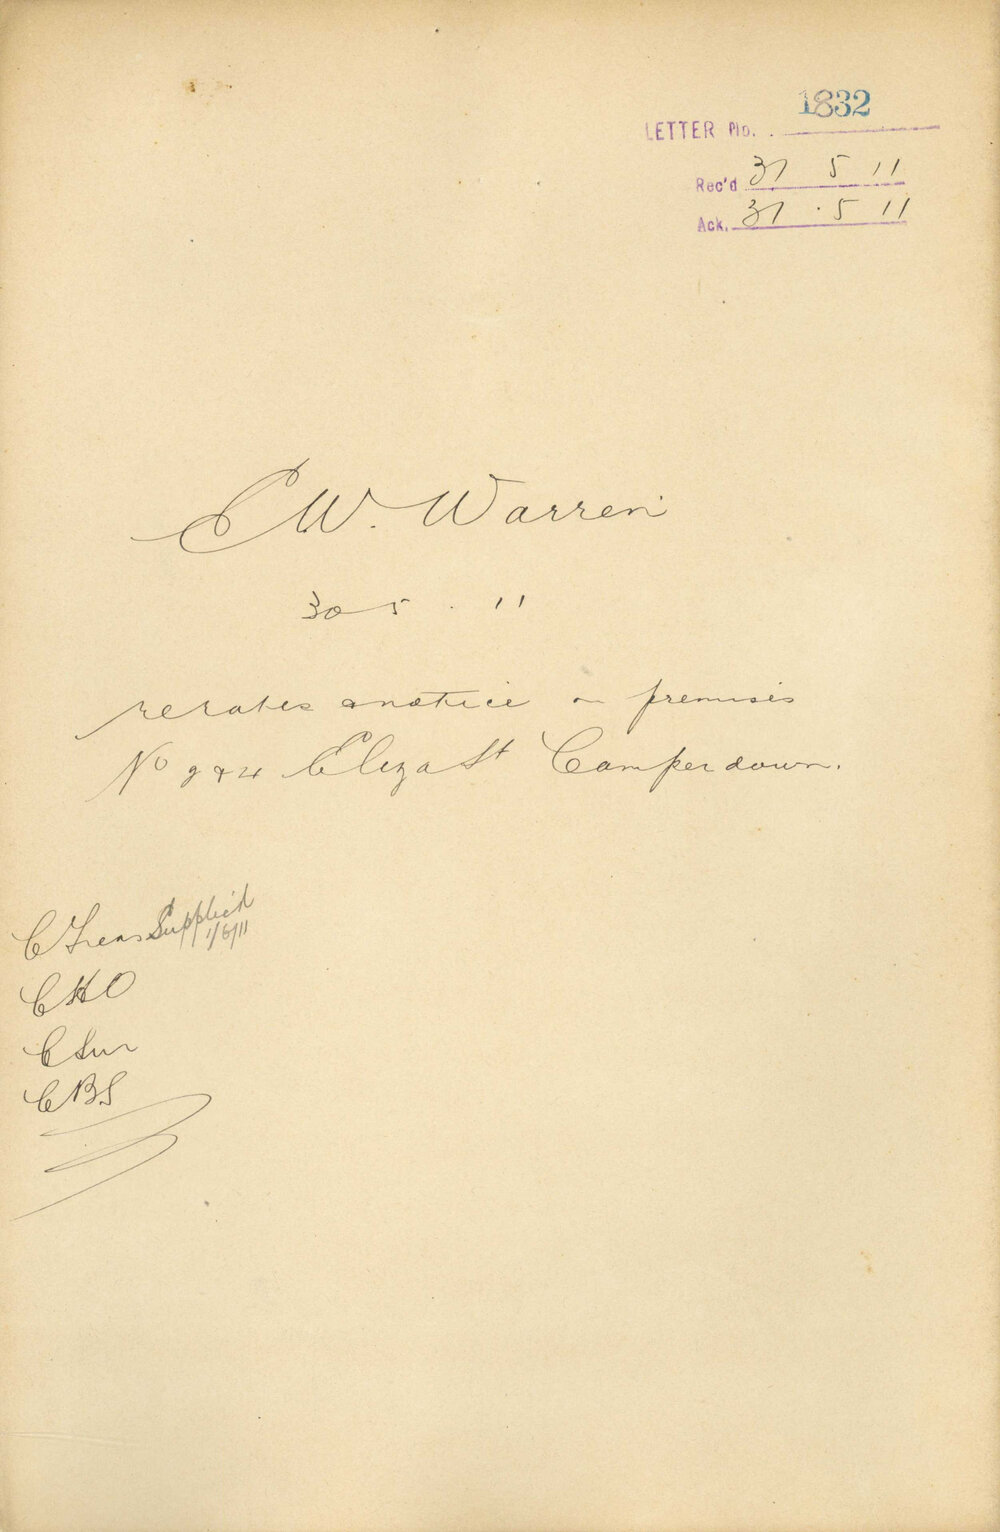 1832
LETTER No.
Rec'd 31 5 11
Ack. 31 . 5 11
C W. Warren
30 5 . 11
re rates & notice on premises
No 2 & 4 Eliza St Camperdown.
C Treas Supplied
1/6/11
CHO
C Sur
CBS